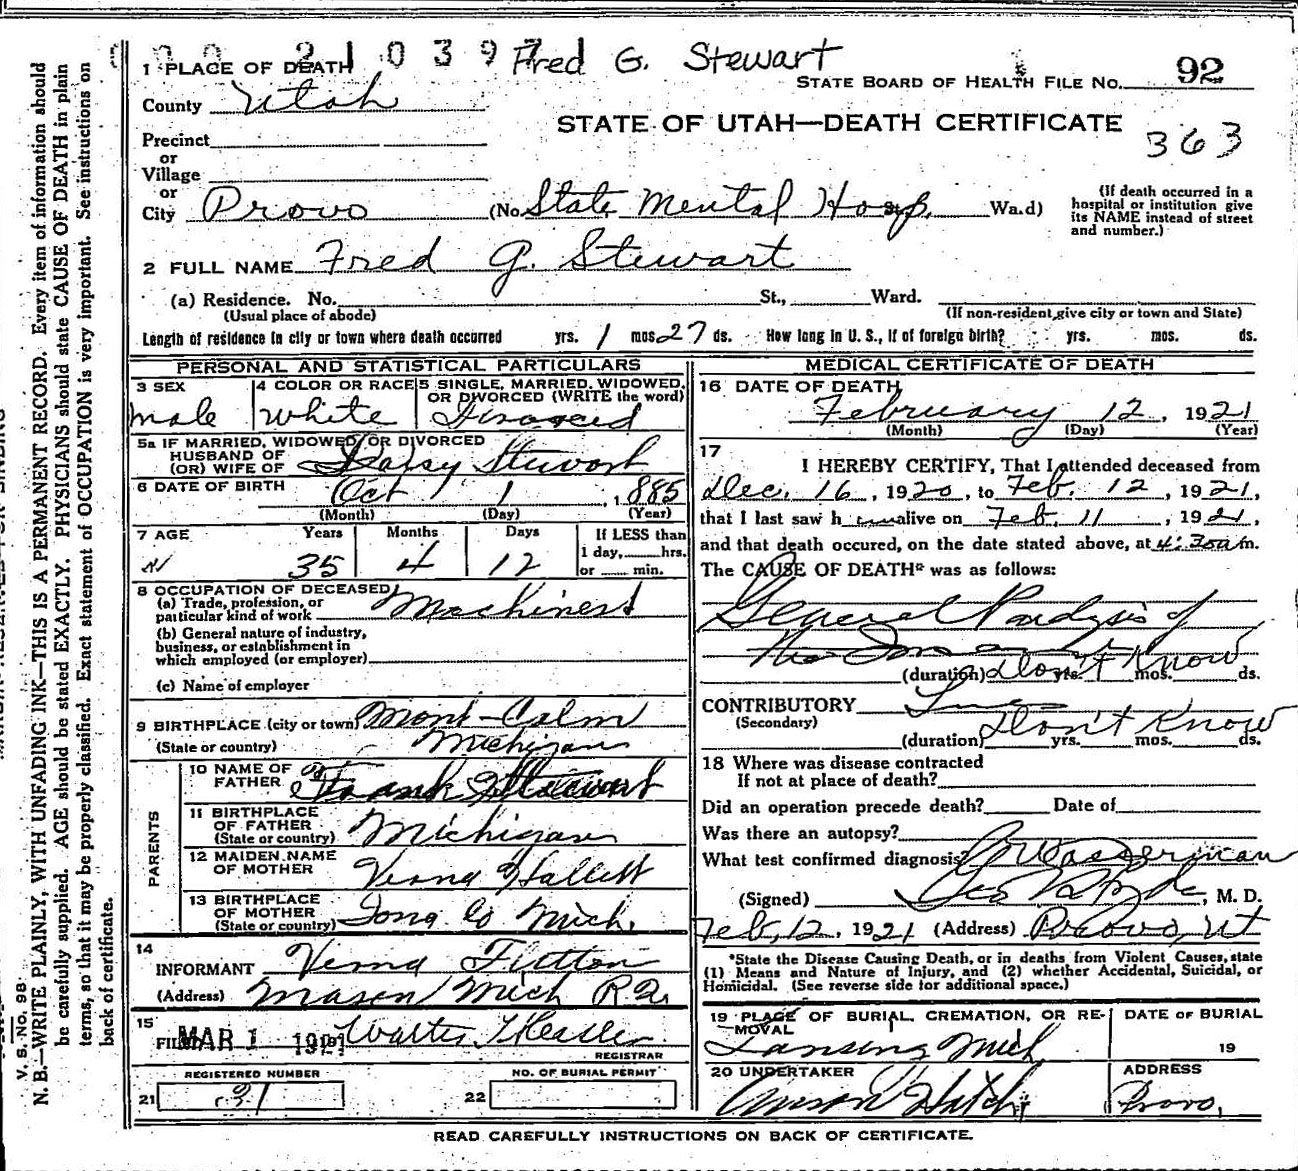 2 1 0 3 9 7 Fred G. Stewart
1 PLACE OF DEATH
STATE BOARD OF HEALTH FILE NO. 92
County Utah
STATE OF UTAH—DEATH CERTIFICATE
363
Precinct
or
Village
or
City Provo (No. State Mental Hosp. Ward)
(If death occurred in a hospital or institution give its NAME instead of street and number.)
2 FULL NAME Fred G. Stewart
(a) Residence. No. St., Ward.
(Usual place of abode) (If non-resident give city or town and State)
Length of residence in city or town where death occurred yrs. 1 mos 27 ds. How long in U. S., if of foreign birth? yrs. mos. ds.
PERSONAL AND STATISTICAL PARTICULARS
3 SEX
male
4 COLOR OR RACE
white
5 SINGLE, MARRIED, WIDOWED, OR DIVORCED (WRITE the word)
Divorced
5a IF MARRIED, WIDOWED, OR DIVORCED
HUSBAND OF
(OR) WIFE OF Daisy Stewart
6 DATE OF BIRTH Oct 1 1885
(Month) (Day) (Year)
7 AGE Years Months Days If LESS than
35 4 12 1 day, hrs.
or min.
8 OCCUPATION OF DECEASED
(a) Trade, profession, or
particular kind of work Machinest
(b) General nature of industry,
business, or establishment in
which employed (or employer)
(c) Name of employer
9 BIRTHPLACE (city or town) Mont-Calm
(State or country) Michigan
PARENTS
10 NAME OF
FATHER Frank Stewart
11 BIRTHPLACE
OF FATHER
(State or country) Michigan
12 MAIDEN NAME
OF MOTHER Verna Hallett
13 BIRTHPLACE
OF MOTHER
(State or country) Iona Co Mich.
14
INFORMANT Verna Fitton
(Address) Mason Mich R 2
15
FILED MAR 1 1921 Walter
REGISTRAR
REGISTERED NUMBER
21 31
NO. OF BURIAL PERMIT
22
MEDICAL CERTIFICATE OF DEATH
16 DATE OF DEATH
February 12, 1921
(Month) (Day) (Year)
17
I HEREBY CERTIFY, That I attended deceased from
Dec. 16, 1920, to Feb. 12, 1921,
that I last saw him alive on Feb. 11, 1921,
and that death occured, on the date stated above, at 4:30am.
The CAUSE OF DEATH* was as follows:
General Paralysis of
the Insane
(duration) Don't Know yrs. mos. ds.
CONTRIBUTORY Lues
(Secondary)
(duration) Don't Know yrs. mos. ds.
18 Where was disease contracted
If not at place of death?
Did an operation precede death? Date of
Was there an autopsy?
What test confirmed diagnosis? Wasserman
(Signed) Geo Hyde, M. D.
Feb, 12, 1921 (Address) Provo, Ut
*State the Disease Causing Death, or in deaths from Violent Causes, state
(1) Means and Nature of Injury, and (2) whether Accidental, Suicidal, or
Homicidal. (See reverse side for additional space.)
19 PLACE OF BURIAL, CREMATION, OR RE-
MOVAL
Lansing Mich
DATE OF BURIAL
19
20 UNDERTAKER
Anson Hatch
ADDRESS
Provo,
READ CAREFULLY INSTRUCTIONS ON BACK OF CERTIFICATE.
V. S. No. 98
N. B.—WRITE PLAINLY, WITH UNFADING INK—THIS IS A PERMANENT RECORD. Every item of information should
be carefully supplied. AGE should be stated EXACTLY. PHYSICIANS should state CAUSE OF DEATH in plain
terms, so that it may be properly classified. Exact statement of OCCUPATION is very important. See instructions on
back of certificate.